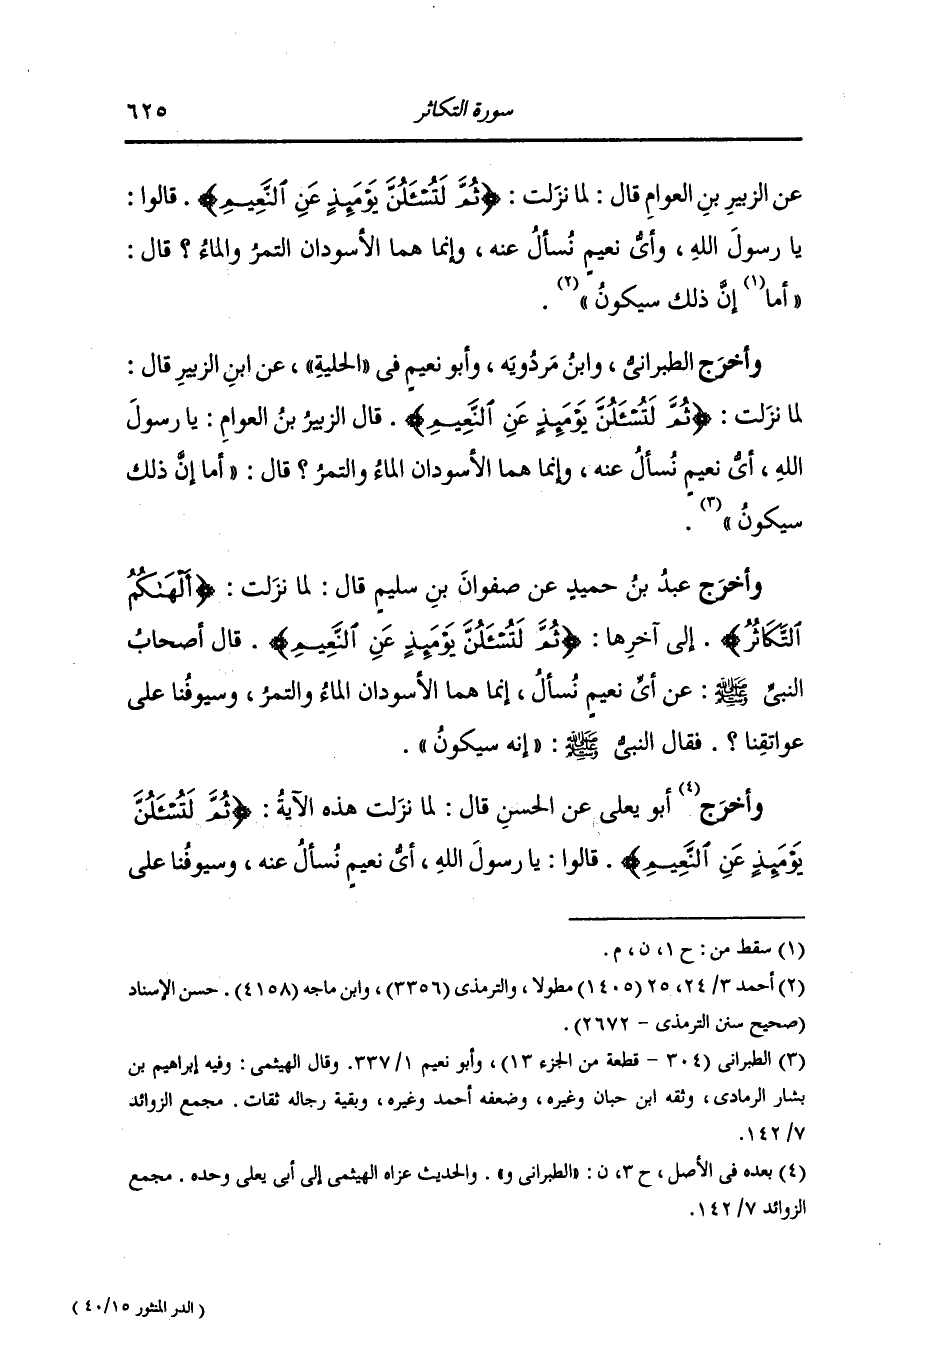 سورة التكاثر ٦٢٥
عن الزبيرِ بنِ العوامِ قال : لما نزَلت : ﴿ثُمَّ لَتُسْـَٔلُنَّ يَوْمَئِذٍ عَنِ ٱلنَّعِيمِ﴾ . قالوا :
يا رسولَ اللهِ ، وأىُّ نعيمٍ نُسألُ عنه ، وإنما هما الأسودان التمرُ والماءُ ؟ قال :
« أما(١) إنَّ ذلك سيكونُ »(٢) .
وأخرَج الطبرانىُّ ، وابنُ مَردُويَه ، وأبو نعيمٍ فى «الحليةِ» ، عن ابنِ الزبيرِ قال :
لما نزَلت : ﴿ثُمَّ لَتُسْـَٔلُنَّ يَوْمَئِذٍ عَنِ ٱلنَّعِيمِ﴾ . قال الزبيرُ بنُ العوامِ : يا رسولَ
اللهِ ، أىُّ نعيمٍ نُسألُ عنه ، وإنما هما الأسودان الماءُ والتمرُ ؟ قال : « أما إنَّ ذلك
سيكونُ »(٣) .
وأخرَج عبدُ بنُ حميدٍ عن صفوانَ بنِ سليمٍ قال : لما نزَلت : ﴿أَلْهَىٰكُمُ
ٱلتَّكَاثُرُ﴾ . إلى آخرِها : ﴿ثُمَّ لَتُسْـَٔلُنَّ يَوْمَئِذٍ عَنِ ٱلنَّعِيمِ﴾ . قال أصحابُ
النبىِّ ﷺ : عن أىِّ نعيمٍ نُسألُ ، إنما هما الأسودان الماءُ والتمرُ ، وسيوفُنا على
عواتقِنا ؟ . فقال النبىُّ ﷺ : «إنه سيكونُ» .
وأخرَج(٤) أبو يعلى عن الحسنِ قال : لما نزَلت هذه الآيةُ : ﴿ثُمَّ لَتُسْـَٔلُنَّ
يَوْمَئِذٍ عَنِ ٱلنَّعِيمِ﴾ . قالوا : يا رسولَ اللهِ ، أىُّ نعيمٍ نُسألُ عنه ، وسيوفُنا على
(١) سقط من : ح ١، ن ، م .
(٢) أحمد ٣/ ٢٤، ٢٥ (١٤٠٥) مطولا ، والترمذى (٣٣٥٦) ، وابن ماجه (٤١٥٨) . حسن الإسناد
(صحيح سنن الترمذى - ٢٦٧٢) .
(٣) الطبرانى (٣٠٤ - قطعة من الجزء ١٣) ، وأبو نعيم ١/ ٣٣٧. وقال الهيثمى : وفيه إبراهيم بن
بشار الرمادى ، وثقه ابن حبان وغيره ، وضعفه أحمد وغيره ، وبقية رجاله ثقات . مجمع الزوائد
٧/ ١٤٢.
(٤) بعده فى الأصل ، ح ٣، ن : «الطبرانى و» . والحديث عزاه الهيثمى إلى أبى يعلى وحده . مجمع
الزوائد ٧/ ١٤٢.
( الدر المنثور ٤٠/١٥ )